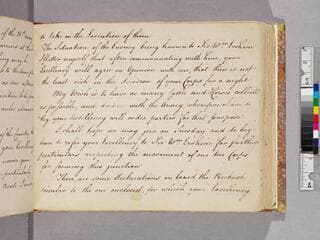 to take in the Execution of them
The Situation of the Enemy being known to Sir Wm Erskine
flatter myself that after communicating with him, your
Excellency will agree in Opinion with me, that there is not
the least risk in the division of your Corps for a night
My Wish is to have as many Cattle and Horses collected
as possible, and drove with the Army wherefore I am to
beg your Excellency will order parties for that purpose
I shall hope we may join on Tuesday and do beg
leave to refer your Excellency to Sir Wm Erskine for further
particulars respecting the movement of our two Corps
for forming this junction
There are some declarations on board the Roebuck
similar to the one enclosed, for which your Excellency